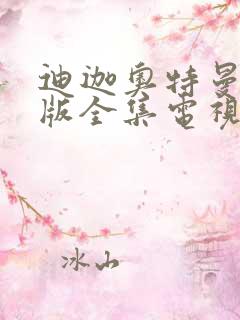 迪迦奥特曼
版全集電視
冰山